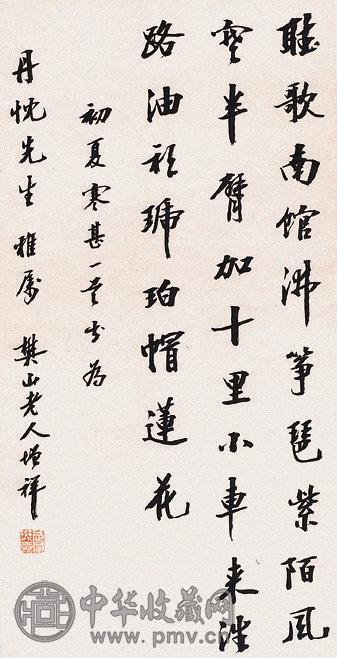 聽歌南館沸箏琶紫陌風
寒半臂加十里小車來往
路油衫琥珀帽蓮花
初夏寒甚一首書為
丹忱先生 雅屬 樊山老人增祥
中华收藏网
www.pmv.cn